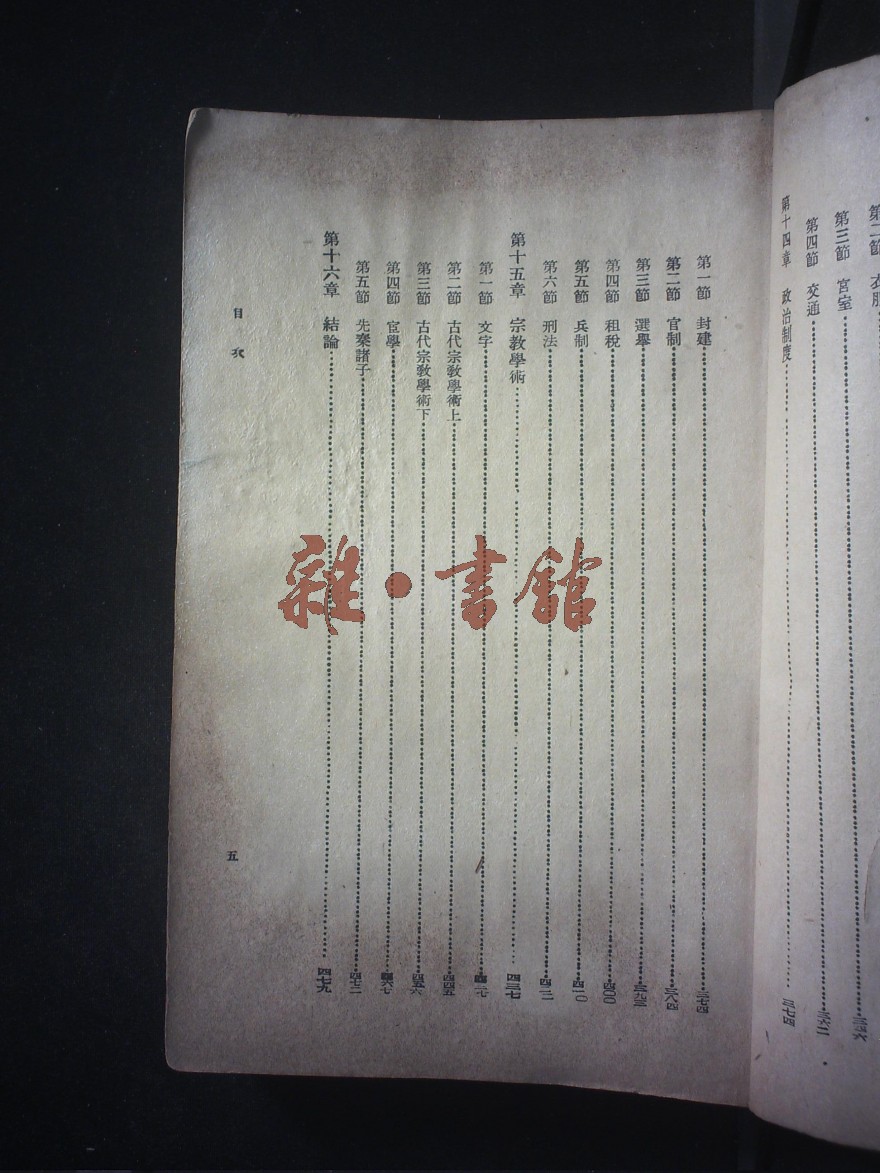 第三節　宮室
第四節　交通……三六二
第十四章　政治制度……三七四
第一節　封建……三七四
第二節　官制……三八四
第三節　選舉……三九三
第四節　租稅……四〇〇
第五節　兵制……四一〇
第六節　刑法
第十五章　宗教學術……四三七
第一節　文字
第二節　古代宗教學術上……四四五
第三節　古代宗教學術下……四五六
第四節　宦學……四六七
第五節　先秦諸子……四七二
第十六章　結論……四七九
目次
五
雜·書館